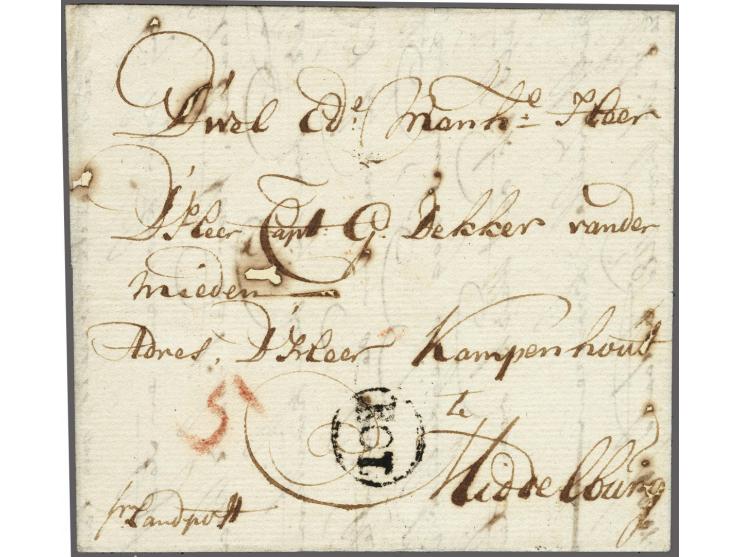 D'wel Ede Manhe Heer
D'Heer Capt. G. Dekker vander
mieden
Adres, D'Heer Kampenhout
te
Middelburg
5
pr Landpost